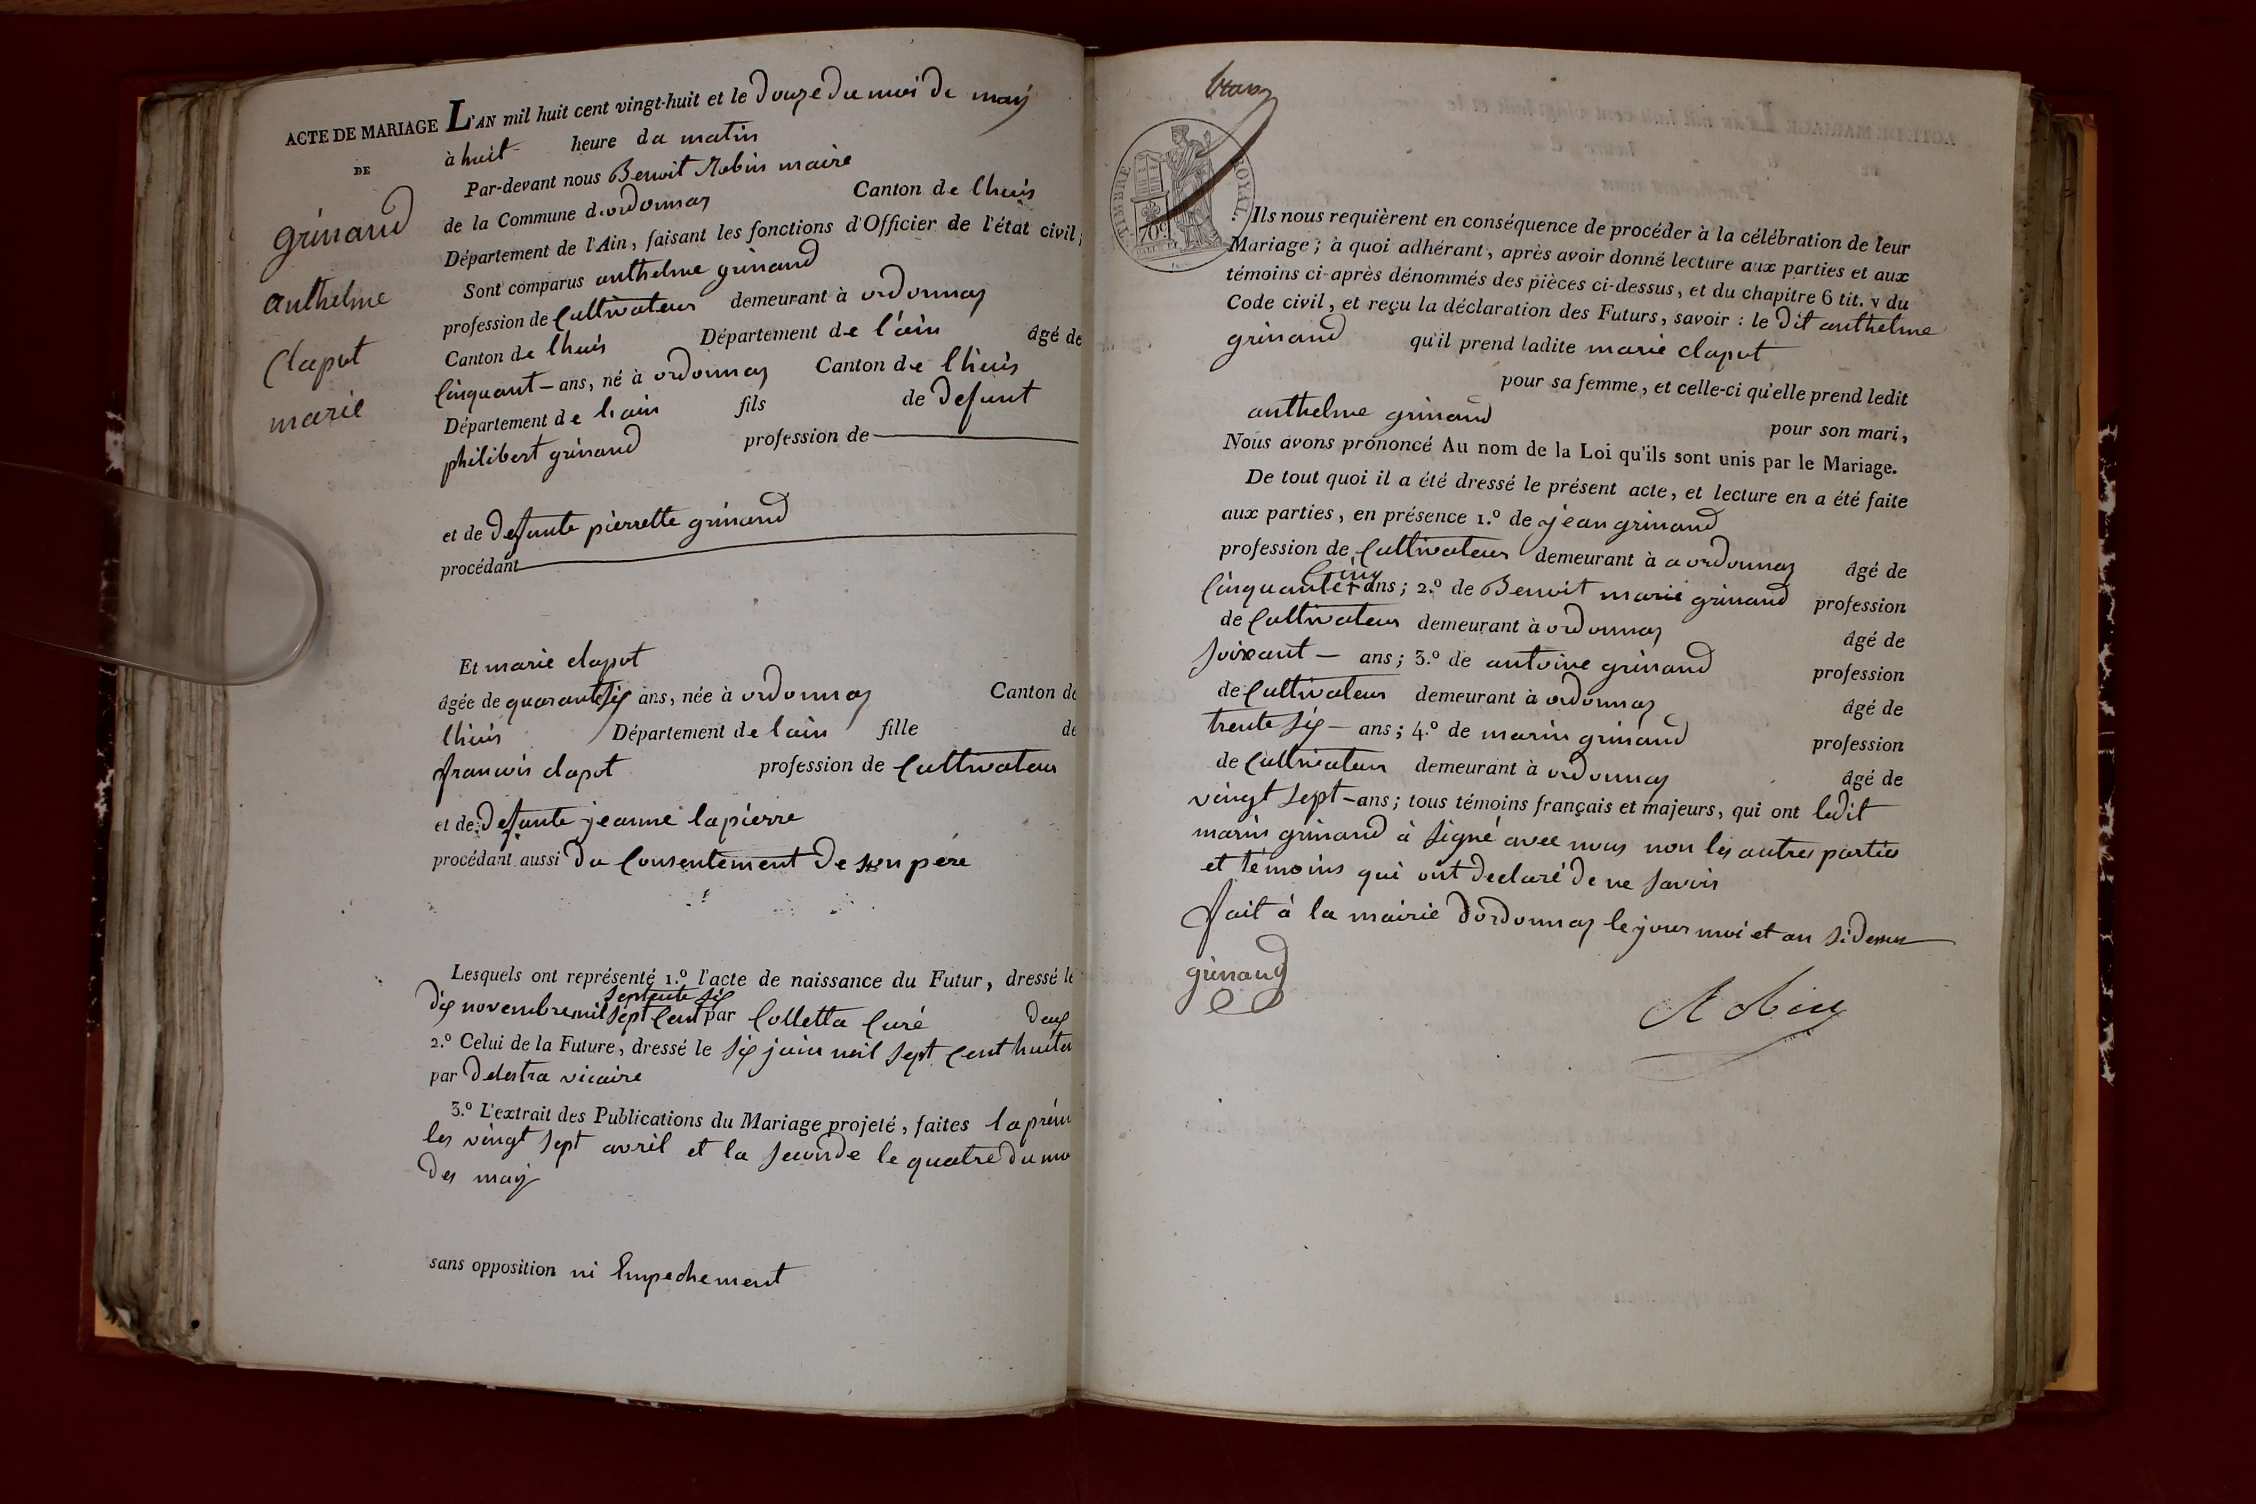 ACTE DE MARIAGE
DE
grinand
anthelme
Clapot
marie
L'AN mil huit cent vingt-huit et le douze du moi de may
à huit heure du matin
Par-devant nous Benoit Robin maire
de la Commune d'ordonnaz Canton de lhuis
Département de l'Ain, faisant les fonctions d'Officier de l'état civil;
Sont comparus anthelme grinand
profession de Cultivateur demeurant à ordonnaz
Canton de lhuis Département de l'ain âgé de
Cinquant - ans, né à ordonnaz Canton de lhuis
Département de lain fils de defunt
philibert grinand profession de
et de defunte pierrette grinand
procédant
Et marie clapot
âgée de quarante six ans, née à ordonnaz Canton de
lhuis Département de lain fille de
francois clapot profession de Cultivateur
et de defunte jeanne lapierre
procédant aussi du Consentement de son père
Lesquels ont représenté 1.º l'acte de naissance du Futur, dressé le
septente six
dix novembre mil sept Cent par Colletta Curé
deux
2.º Celui de la Future, dressé le six juin mil sept Cent huitan
par delestra vicaire
3.º L'extrait des Publications du Mariage projeté, faites la prem
les vingt sept avril et la seconde le quatre du mo
des may
sans opposition ni Empechement
TIMBRE ROYAL
70c
Ils nous requièrent en conséquence de procéder à la célébration de leur
Mariage; à quoi adhérant, après avoir donné lecture aux parties et aux
témoins ci-après dénommés des pièces ci-dessus, et du chapitre 6 tit. v du
Code civil, et reçu la déclaration des Futurs, savoir: le dit anthelme
grinand qu'il prend ladite marie clapot
pour sa femme, et celle-ci qu'elle prend ledit
anthelme grinand pour son mari,
Nous avons prononcé Au nom de la Loi qu'ils sont unis par le Mariage.
De tout quoi il a été dressé le présent acte, et lecture en a été faite
aux parties, en présence 1.º de jean grinand
profession de Cultivateur demeurant à a ordonnaz âgé de
Cinq
Cinquante + ans; 2.º de Benoit marie grinand profession
de Cultivateur demeurant à ordonnaz âgé de
soixant - ans; 3.º de antoine grinand profession
de Cultivateur demeurant à ordonnaz âgé de
trente six - ans; 4.º de marin grinand profession
de Cultivateur demeurant à ordonnaz âgé de
vingt sept - ans; tous témoins français et majeurs, qui ont ledit
marin grinand à signé avec nous non les autres parties
et témoins qui ont declaré de ne savoir
fait à la mairie dordonnaz le jour moi et an sidessus
grinand
Robin